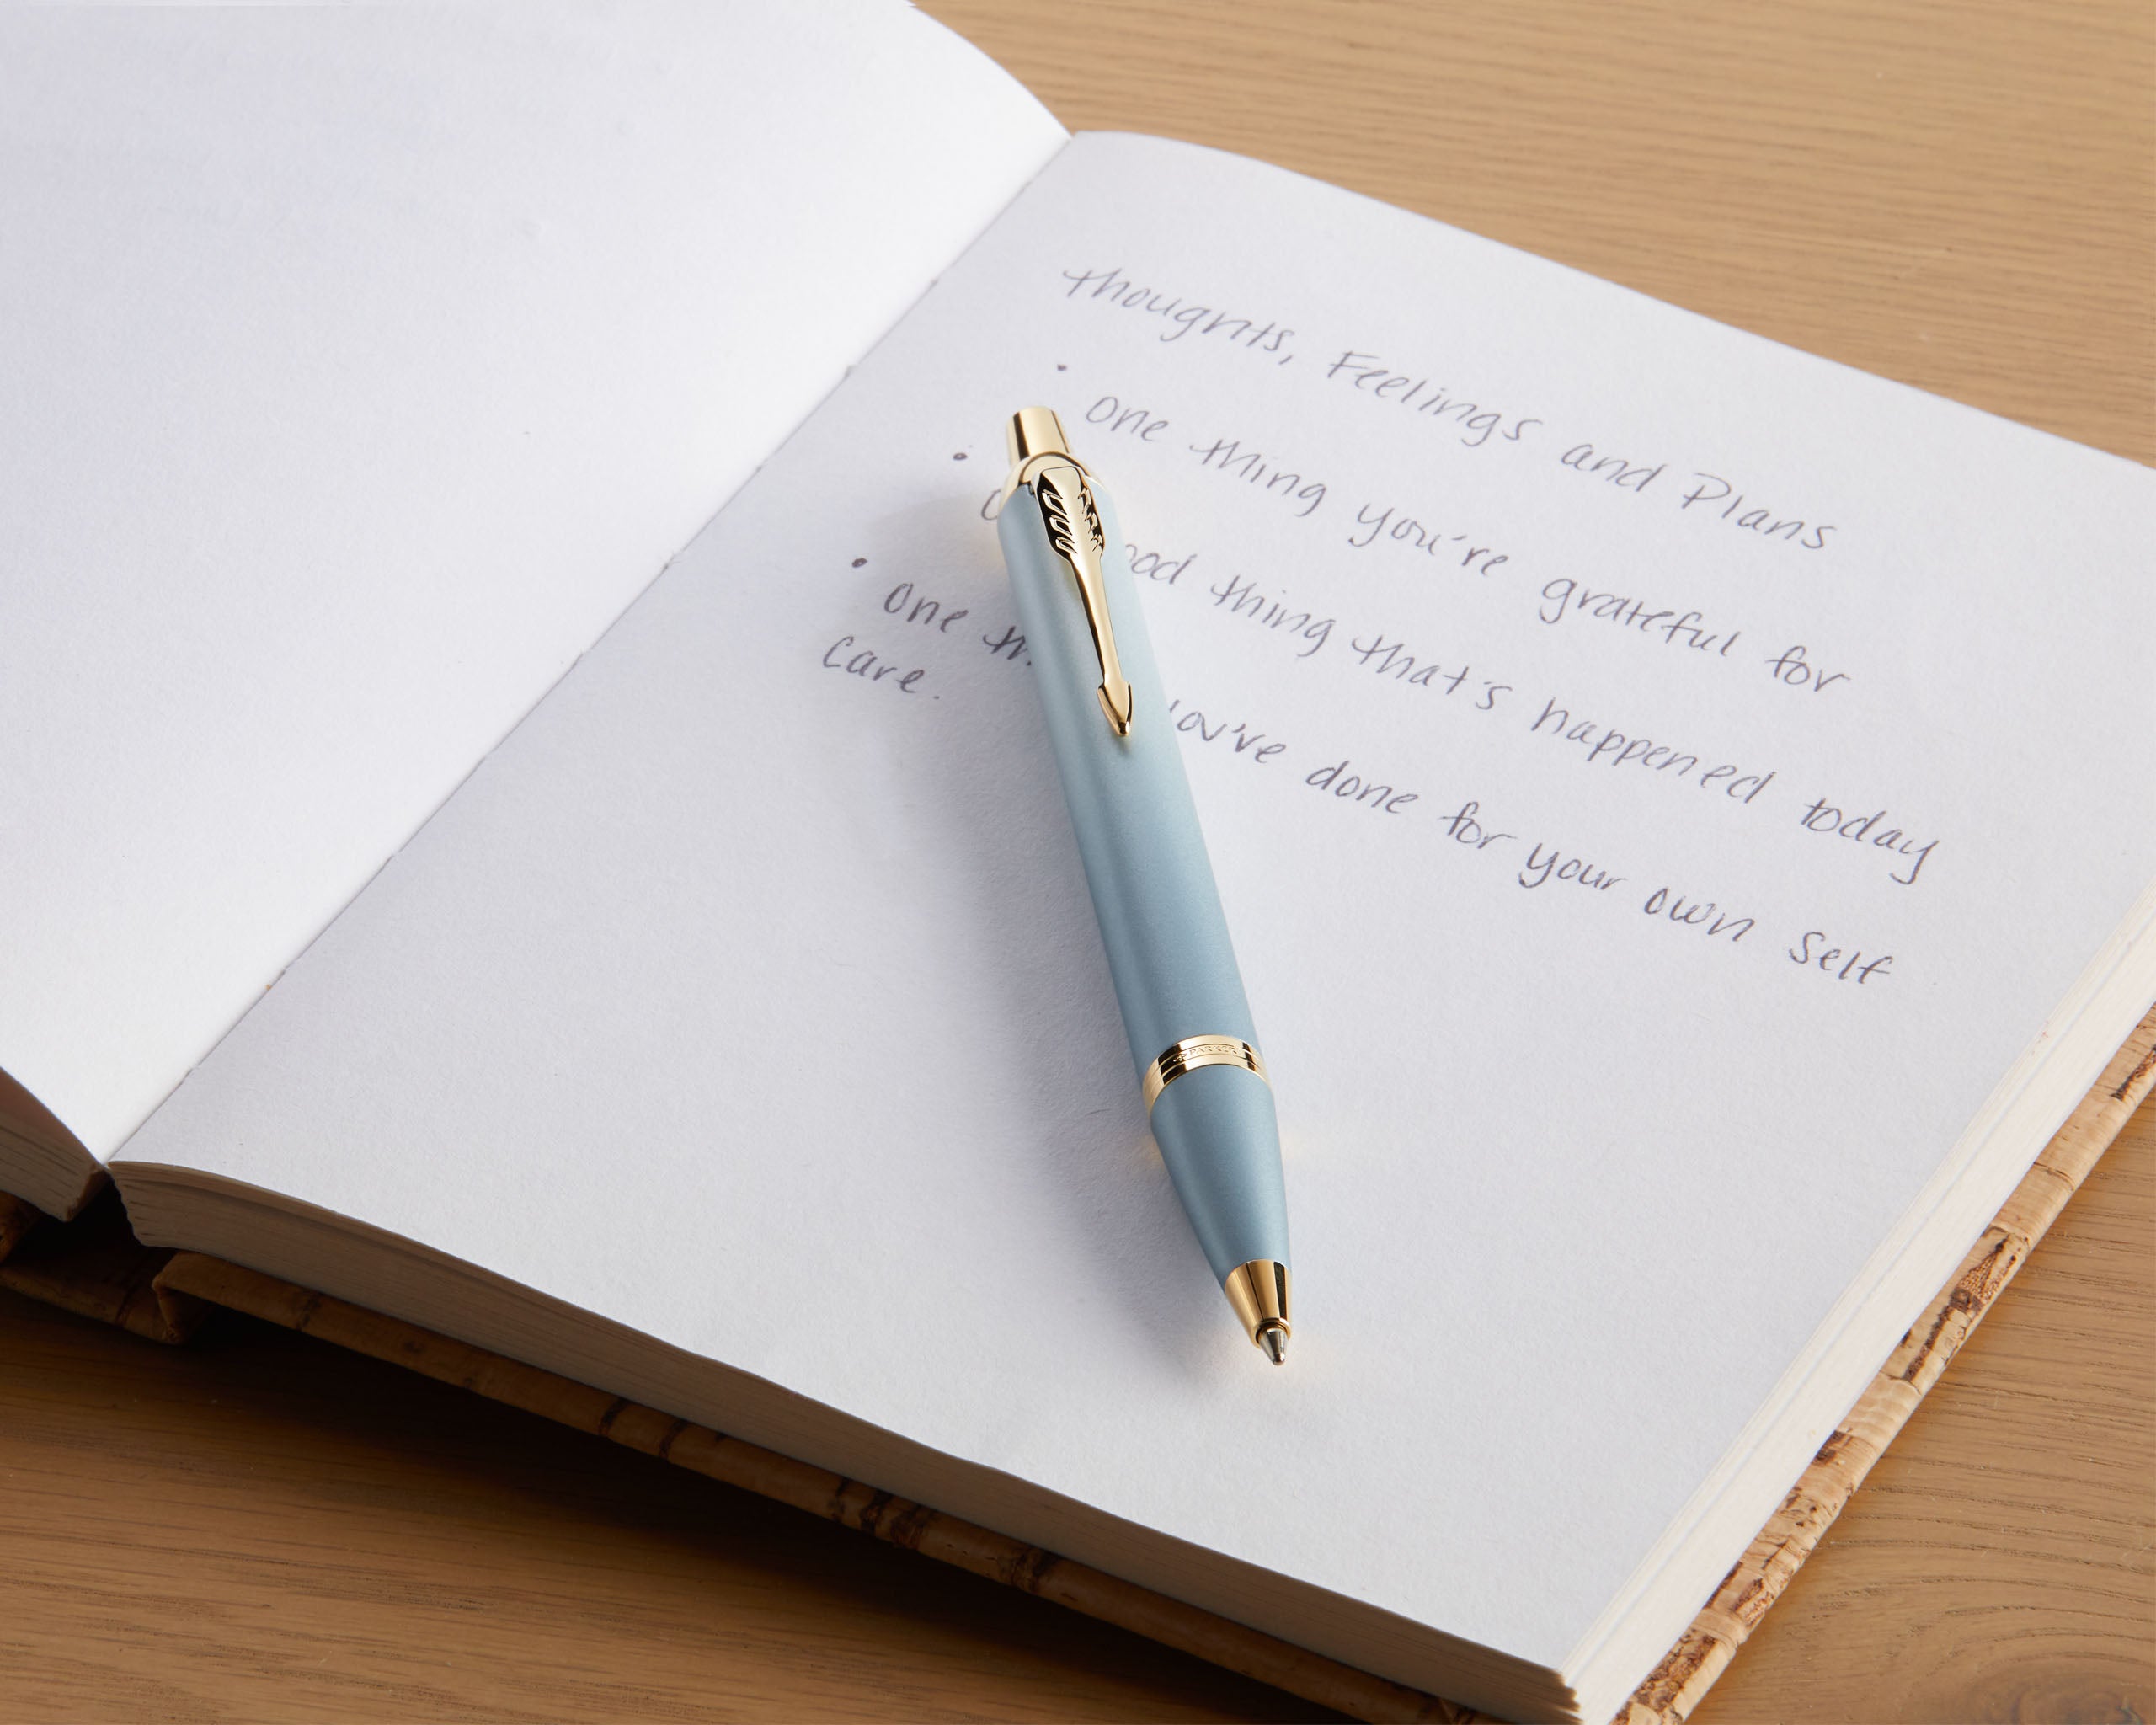 thoughts, Feelings and Plans
• one thing you're grateful for
• ood thing that's happened today
• one you've done for your own self
care.
PARKER